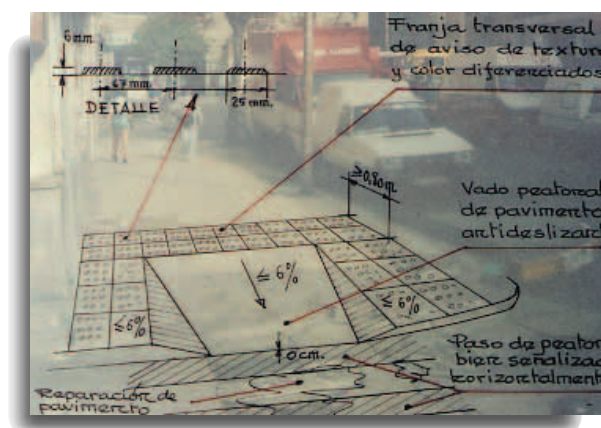 6 mm.
67 mm.
25 mm.
DETALLE
Franja transversal
de aviso de textur
y color diferenciados
≥0,80m
Vado peatonal
de pavimento
antideslizant
≤ 6%
≤ 6%
≤6%
0 cm.
Paso de peaton
bien señalizad
horizontalment
Reparación de
pavimento